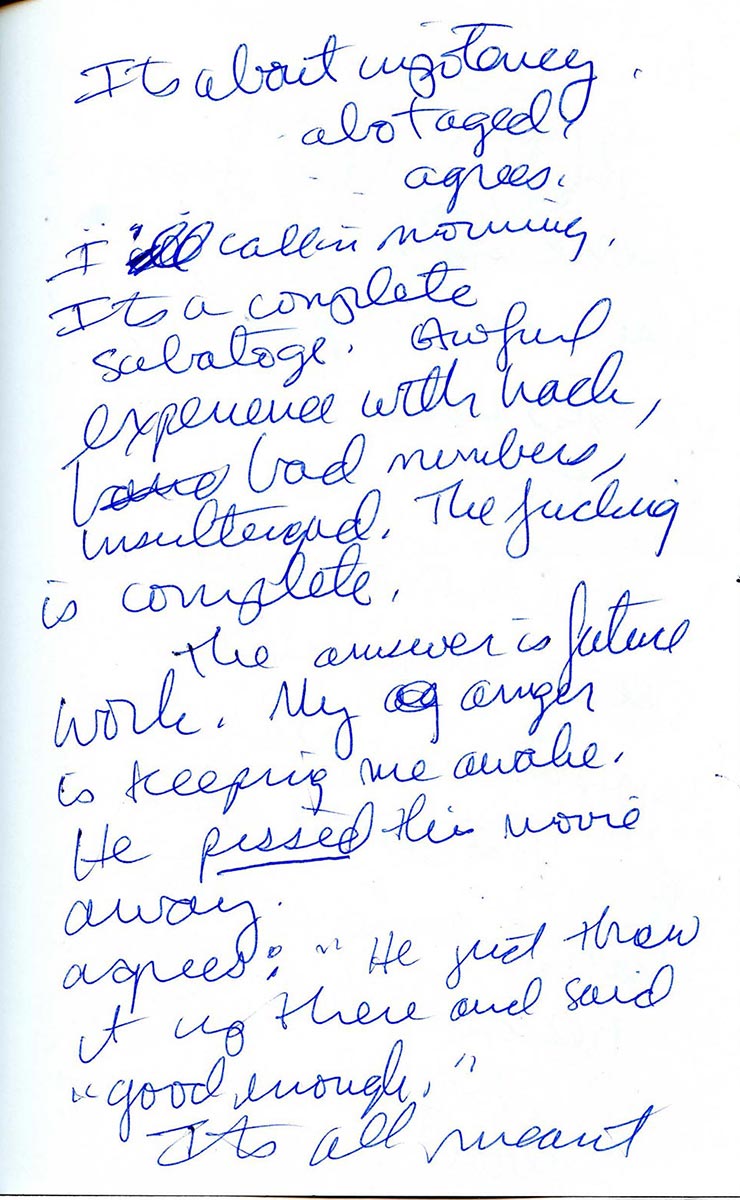 Its about impotency.
abotaged?
agrees.
I'll call in morning.
Its a complete
sabatoge. Awful
experience with hack,
bad numbers,
The fucking
is complete.
The answer is future
work. My anger
is keeping me awake.
He pissed this movie
away.
agrees: "He just threw
it up there and said
"good enough."
Its all meant